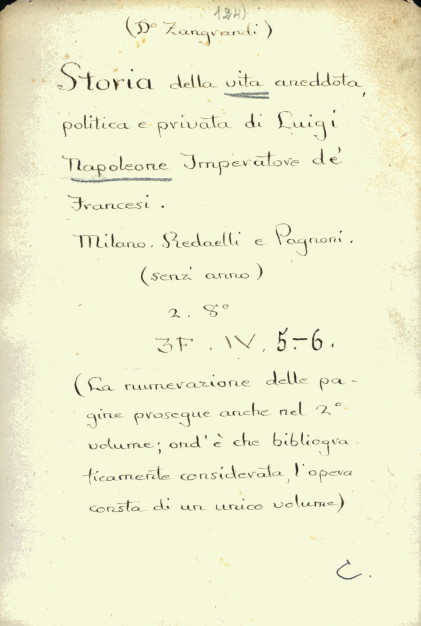 124)
(Dº Zangrandi)
Storia della vita aneddota,
politica e privata di Luigi
Napoleone Imperatore de'
Francesi.
Milano. Redaelli e Pagnoni.
(senz' anno)
2. 8º
3F. IV. 5-6.
(La numerazione delle pa-
gine prosegue anche nel 2º
volume; ond'è che bibliogra-
ficamente considerata, l'opera
consta di un unico volume)
C.